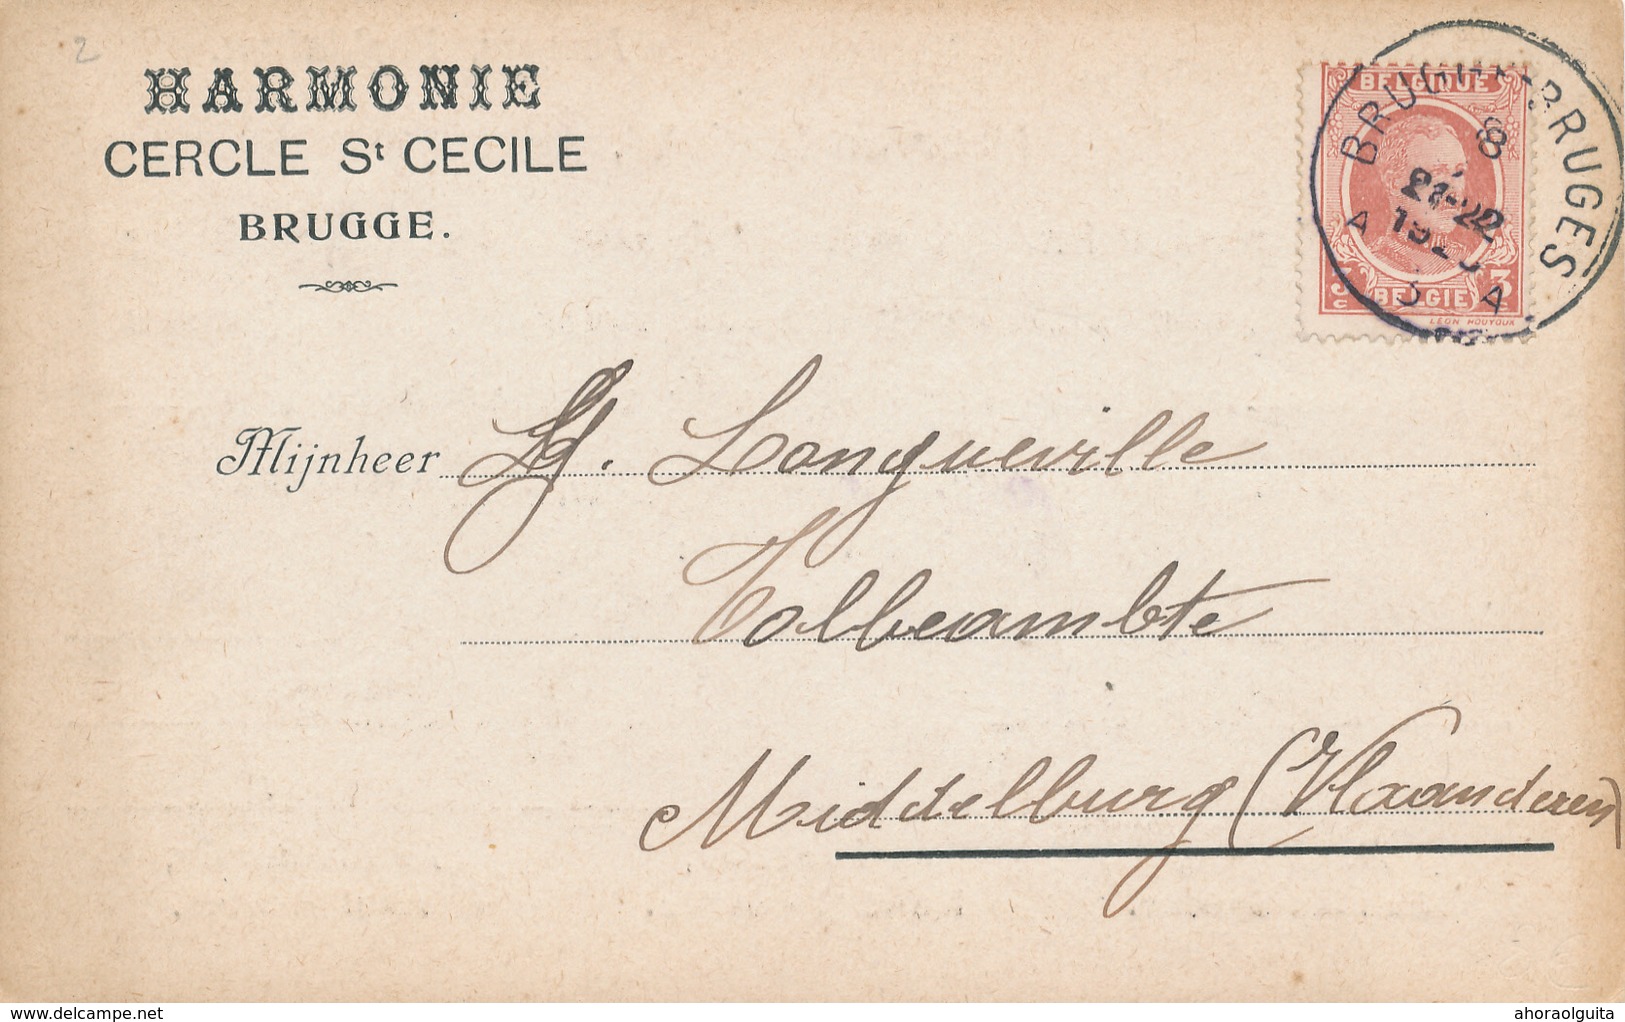 2
HARMONIE
CERCLE St CECILE
BRUGGE.
BELGIQUE
3 C 3 C
BELGIE
LÉON HOUYOUX
BRUGGE BRUGES
8
21-22
A A
3
Mijnheer Lg. Longueville
Tolbeambte
Middelburg (Vlaanderen)
delcampe.net
ahoraolguita